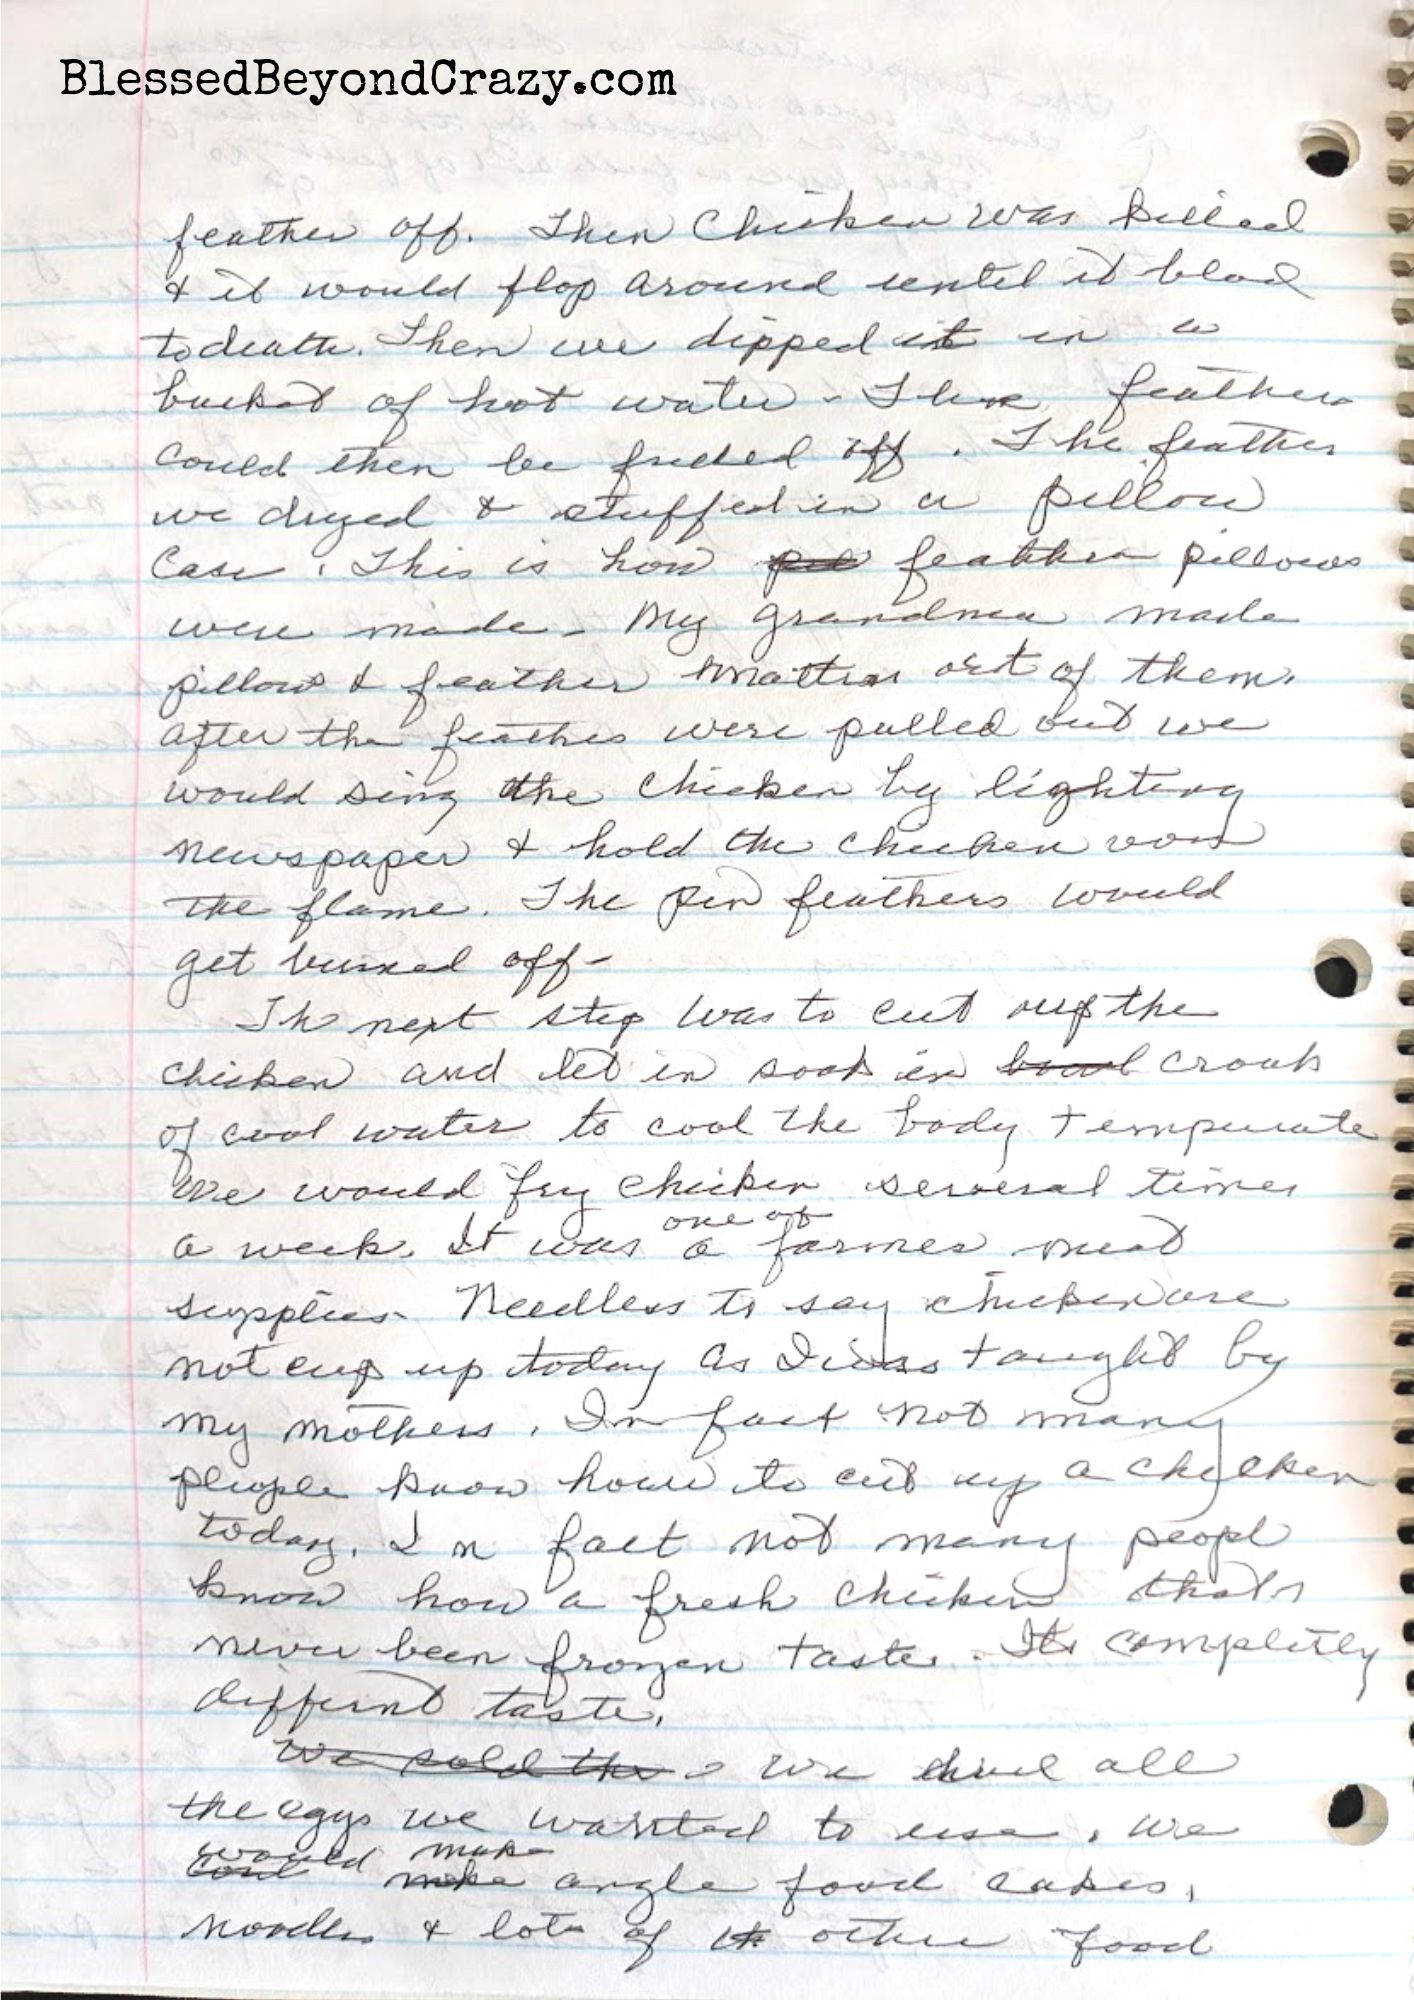 BlessedBeyondCrazy.com
feather off. Then Chicken was killed
& it would flop around until it blead
to death. Then we dipped it in a
bucket of hot water - The feathers
could then be pulled off. The feather
we dryed & stuffed in a pillow
case. This is how feather pillows
were made - My grandma made
pillows & feather mattress out of them.
After the feathers were pulled out we
would sing the chicken by lighting
newspaper & hold the chicken over
the flame. The pin feathers would
get burned off -
Th next step was to cut up the
chicken and let in soak in crouk
of cool water to cool the body temperate
We would fry chicken several times
a week. It was one of a farmer meat
supplies - Needless to say chicken are
not cup up today as I was taught by
my mothers. In fact not many
people know how to cut up a chicken
today. In fact not many peopl
know how a fresh chicken thats
never been frozen taste. Its completly
differnt taste.
We sold the We had all
the eggs we wanted to use. We
would make
angle food cakes,
noodles & lots of other food